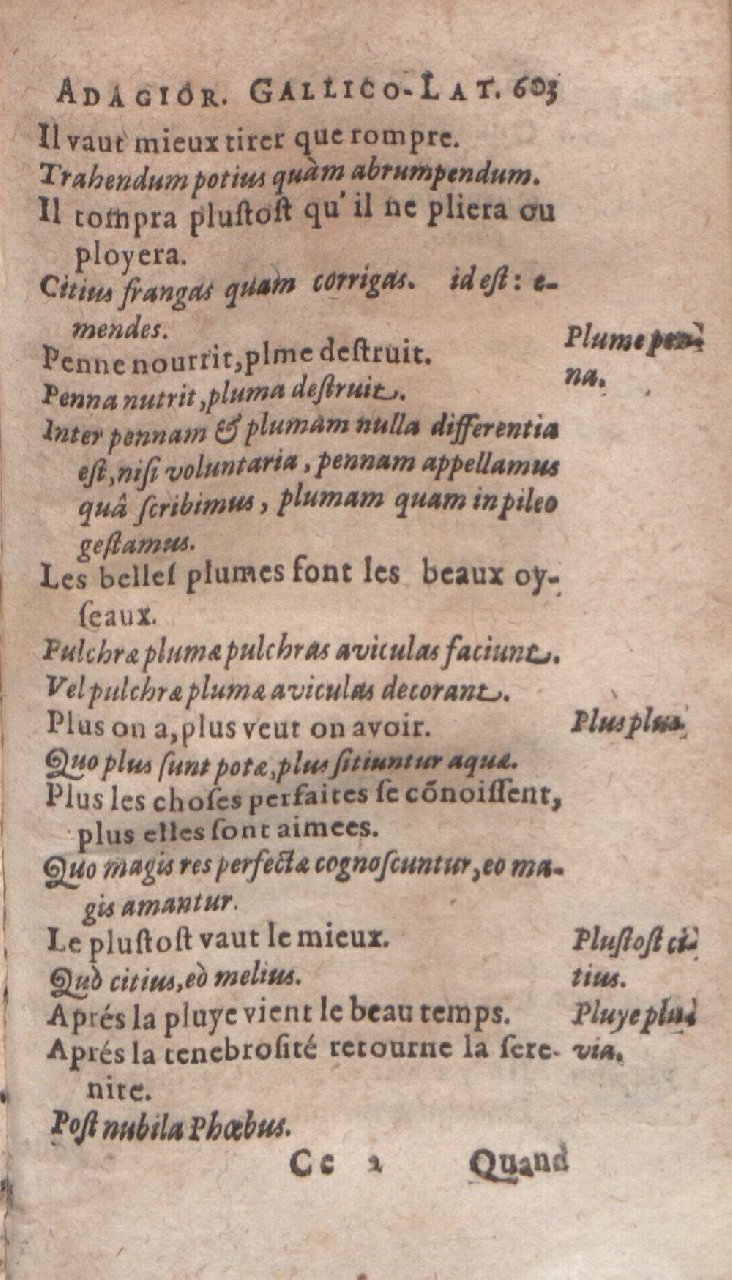 ADAGIOR. GALLICO-LAT. 603
Il vaut mieux tirer que rompre.
Trahendum potius quàm abrumpendum.
Il rompra plustoſt qu'il ne pliera ou
ployera.
Citius frangas quam corrigas. id eſt: e-
mendes.
Penne nourrit, plme deſtruit.
Plume pen-
na.
Penna nutrit, pluma deſtruit.
Inter pennam & plumam nulla differentia
eſt, niſi voluntaria, pennam appellamus
quâ ſcribimus, plumam quam in pileo
geſtamus.
Les belleſ plumes font les beaux oy-
ſeaux.
Pulchræ plumæ pulchras aviculas faciunt.
Vel pulchræ plumæ aviculas decorant.
Plus on a, plus veut on avoir.
Plus plus.
Quo plus ſunt potæ, plus ſitiuntur aquæ.
Plus les choſes perfaites ſe cõnoiſſent,
plus elles ſont aimees.
Quo magis res perfectæ cognoſcuntur, eo ma-
gis amantur.
Le pluſtoſt vaut le mieux.
Pluſtoſt ci-
tius.
Quò citius, eò melius.
Aprés la pluye vient le beau temps.
Pluye plu-
via.
Aprés la tenebroſité retourne la ſere-
nite.
Poſt nubila Phœbus.
Cc 2 Quand